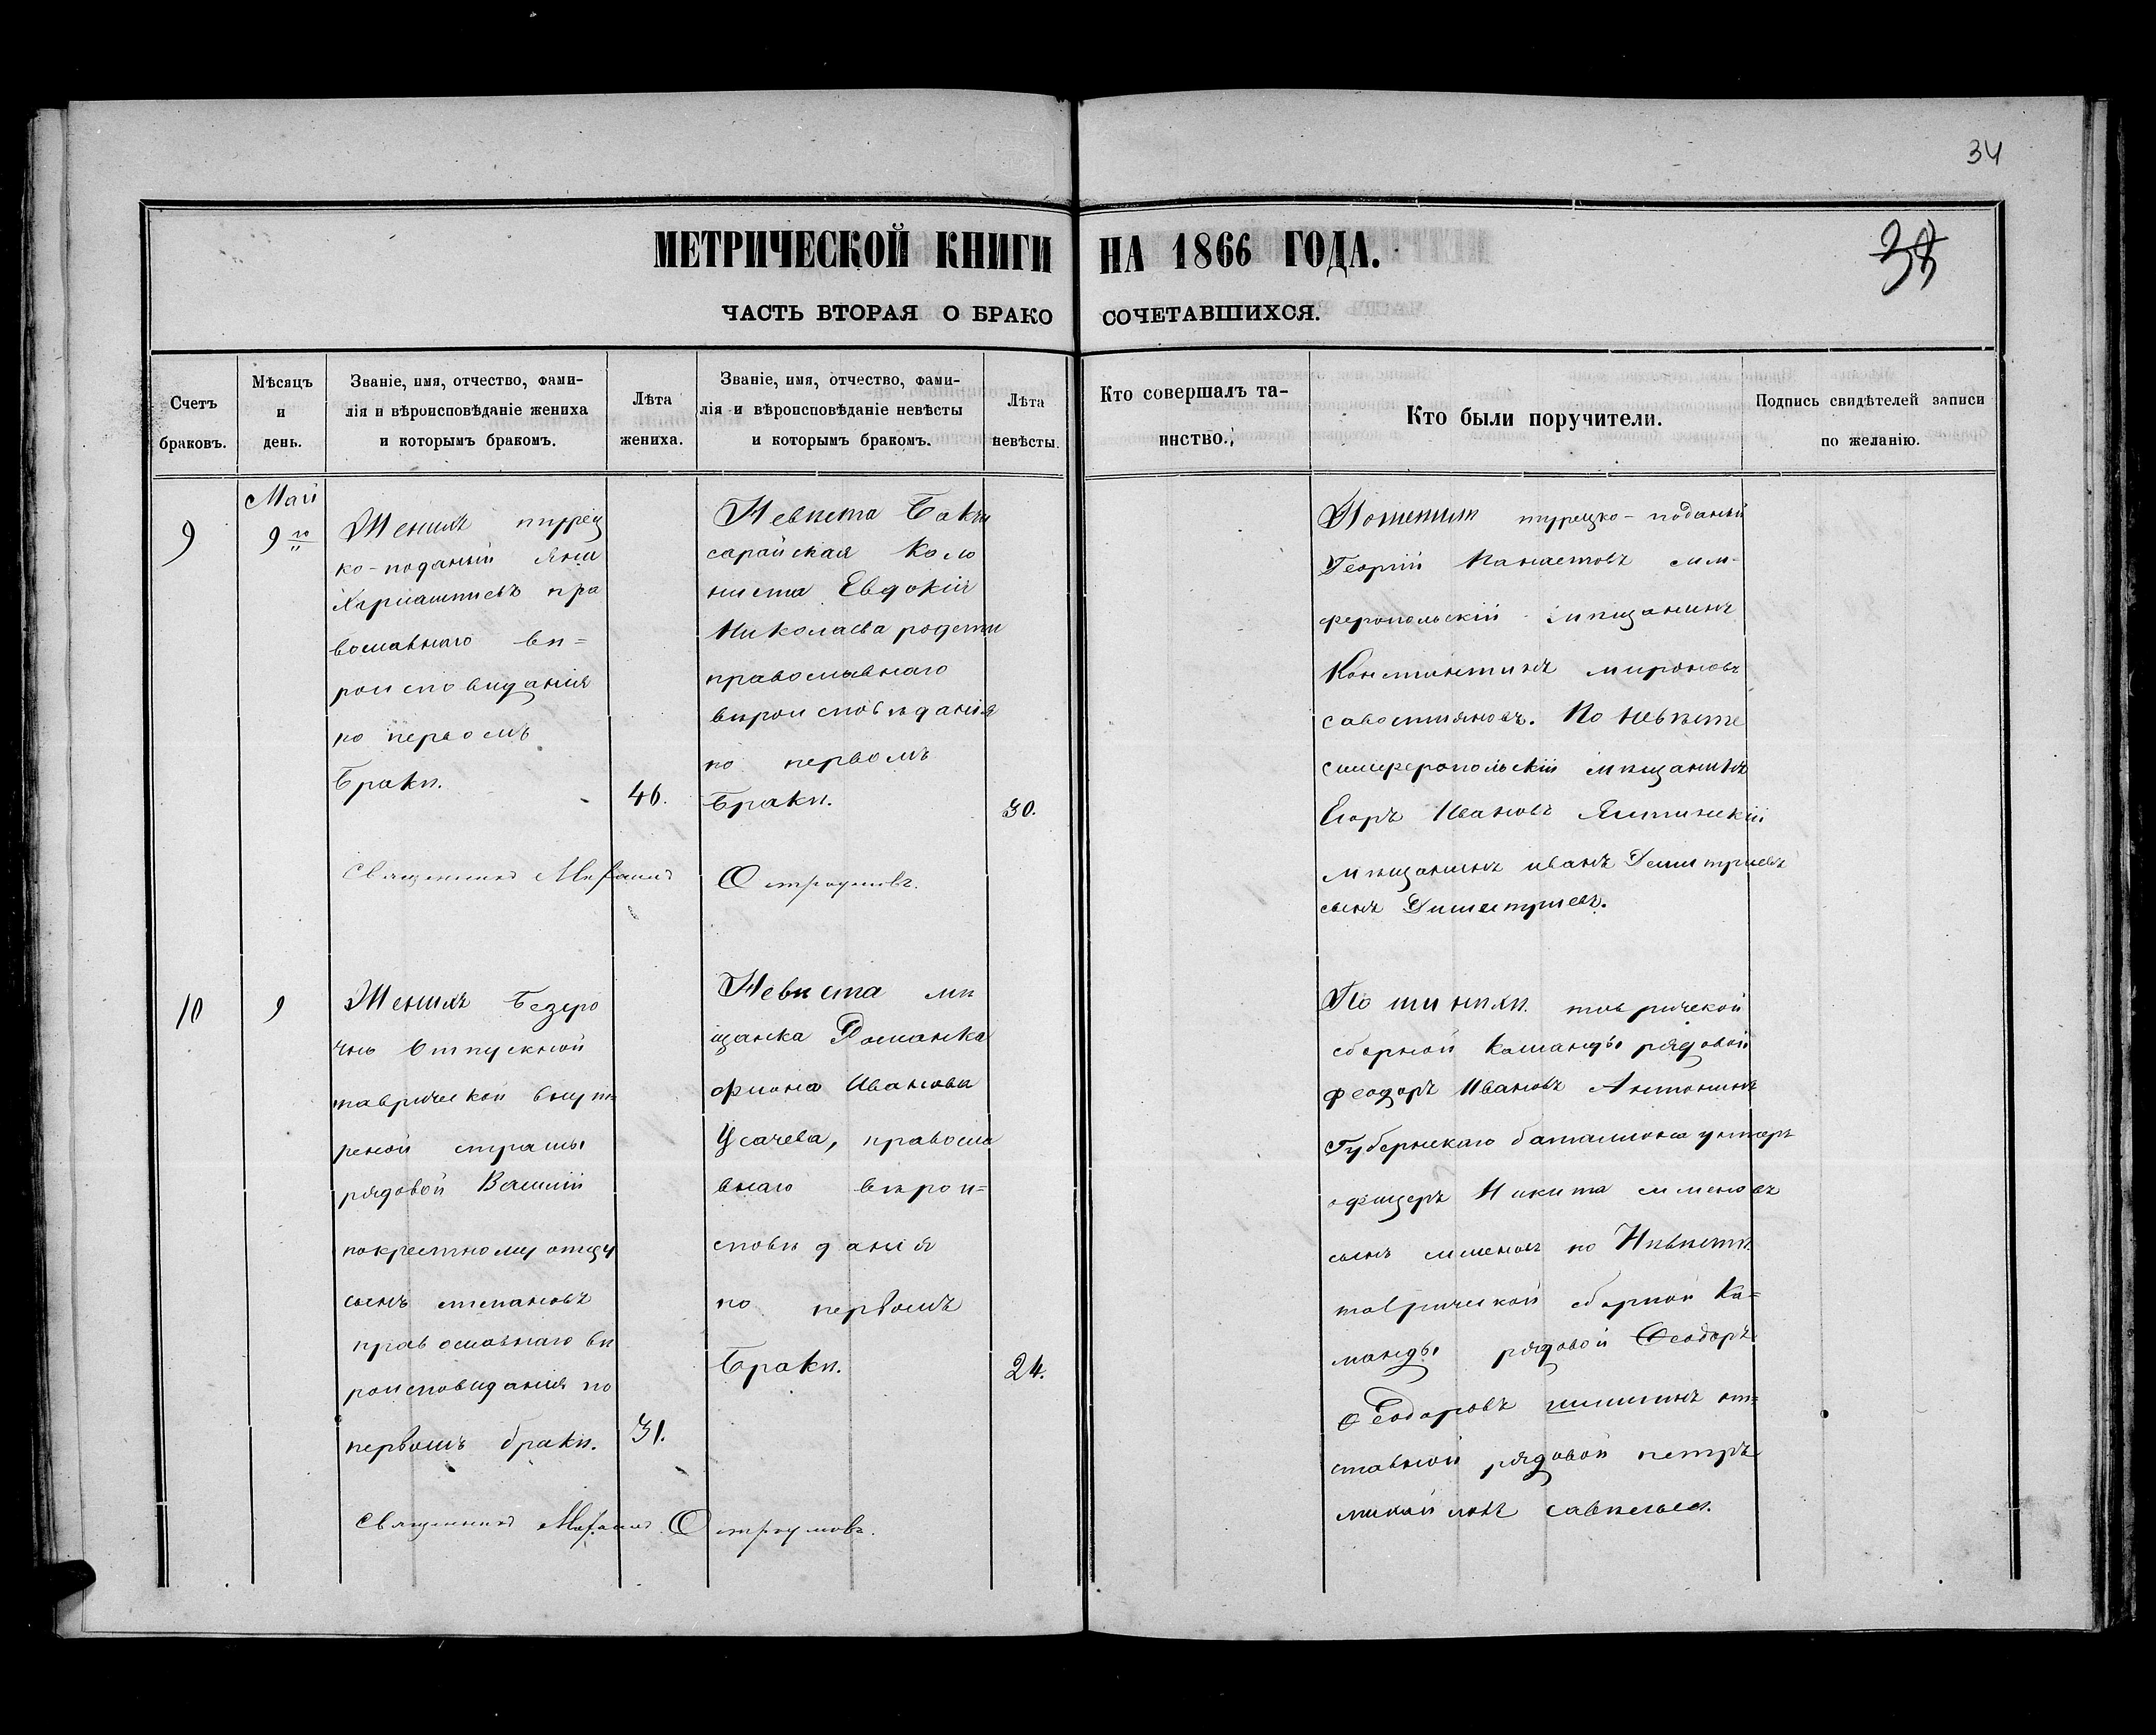 34
МЕТРИЧЕСКОЙ КНИГИ НА 1866 ГОДА.
38
ЧАСТЬ ВТОРАЯ О БРАКО СОЧЕТАВШИХСЯ.
Счетъ
браковъ.
Мѣсяцъ
и
день.
Званіе, имя, отчество, фами-
лія и вѣроисповѣданіе жениха
и которымъ бракомъ.
Лѣта
жениха.
Званіе, имя, отчество, фами-
лія и вѣроисповѣданіе невѣсты
и которымъ бракомъ.
Лѣта
невѣсты.
Кто совершалъ та-
инство.,
Кто были поручители.
Подпись свидѣтелей записи
по желанію.
9
Май
9 го
Женихъ турец
ко-поданый
пра
вославнаго вѣ=
роисповиданія
по первомъ
Бракѣ.
46.
Невѣста Бахчи
сарайская Коло
ниста Евдокій
Николаева
православнаго
вѣроисповѣданія
по первомъ
Бракѣ.
30.
Священникъ Мефодій Остроумовъ.
турецко-поданый
Георгій сим-
феропольскій мѣщанинъ
Константинъ мироновъ
савостияновъ. По Невѣсте
симферопольскій мѣщанинъ
Егоръ Ивановъ
мѣщанинъ иванъ Демитриевъ
сынъ Димитриевъ.
10
9
Женихъ безсро
чно Отпускной
таврической внут
реной стражы
рядовой Василій
покрестному отцу
сынъ степановъ
православнаго вѣ
роисповиданія по
первомъ бракѣ.
31.
Невѣста мѣ
щанка Домника
Иванова
Усачева, правосла
внаго вѣрои=
сповѣданія
по первомъ
Бракѣ.
24.
Священникъ Мефодій Остроумовъ.
По жинихѣ таврической
сборной Команды рядовой
Феодоръ Ивановъ Антонинъ
Губернскаго баталиона унтеръ
офицеръ Никита семеновъ
сынъ семеновъ по Нивѣсти
таврической сборной Ка=
манды рядовой Феодоръ
Феодоровъ шишкинъ от=
ставной рядовой петръ
михайловъ савельев.